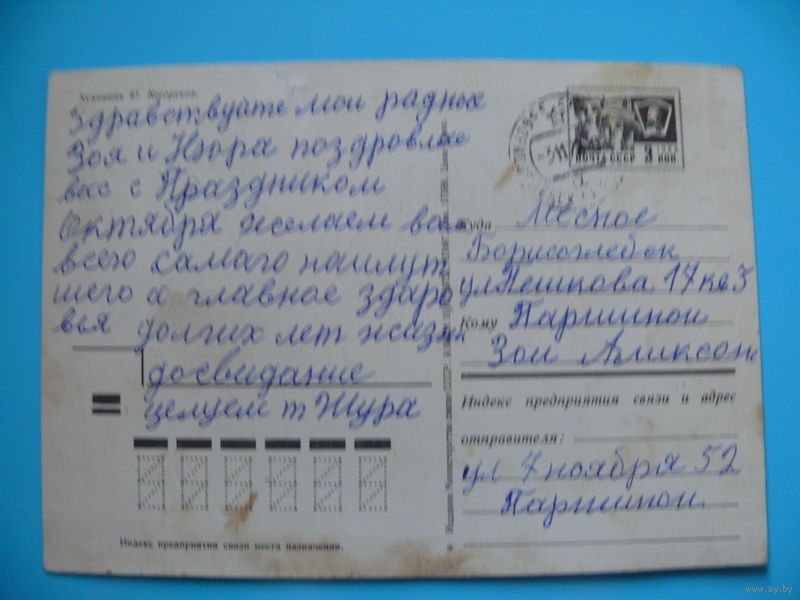 Художник Ю.
Здравствуйте мои радные
Зоя и Нюра поздровляю
вас с Праздником
Октября желаем вам
всего самаго наилут
шего а главное здаро
вья долгих лет жизни
досвидание
целуем т Шура
Индекс предприятия связи места назначения.
ПОЧТА СССР 3 КОП.
Куда Месное
Борисоглебск
ул Пешкова 17 кв 3
Кому Паршиной
Зои Аликсан
Индекс предприятия связи и адрес
отправителя:
ул 7 ноября 52
Паршиной
www.ay.by